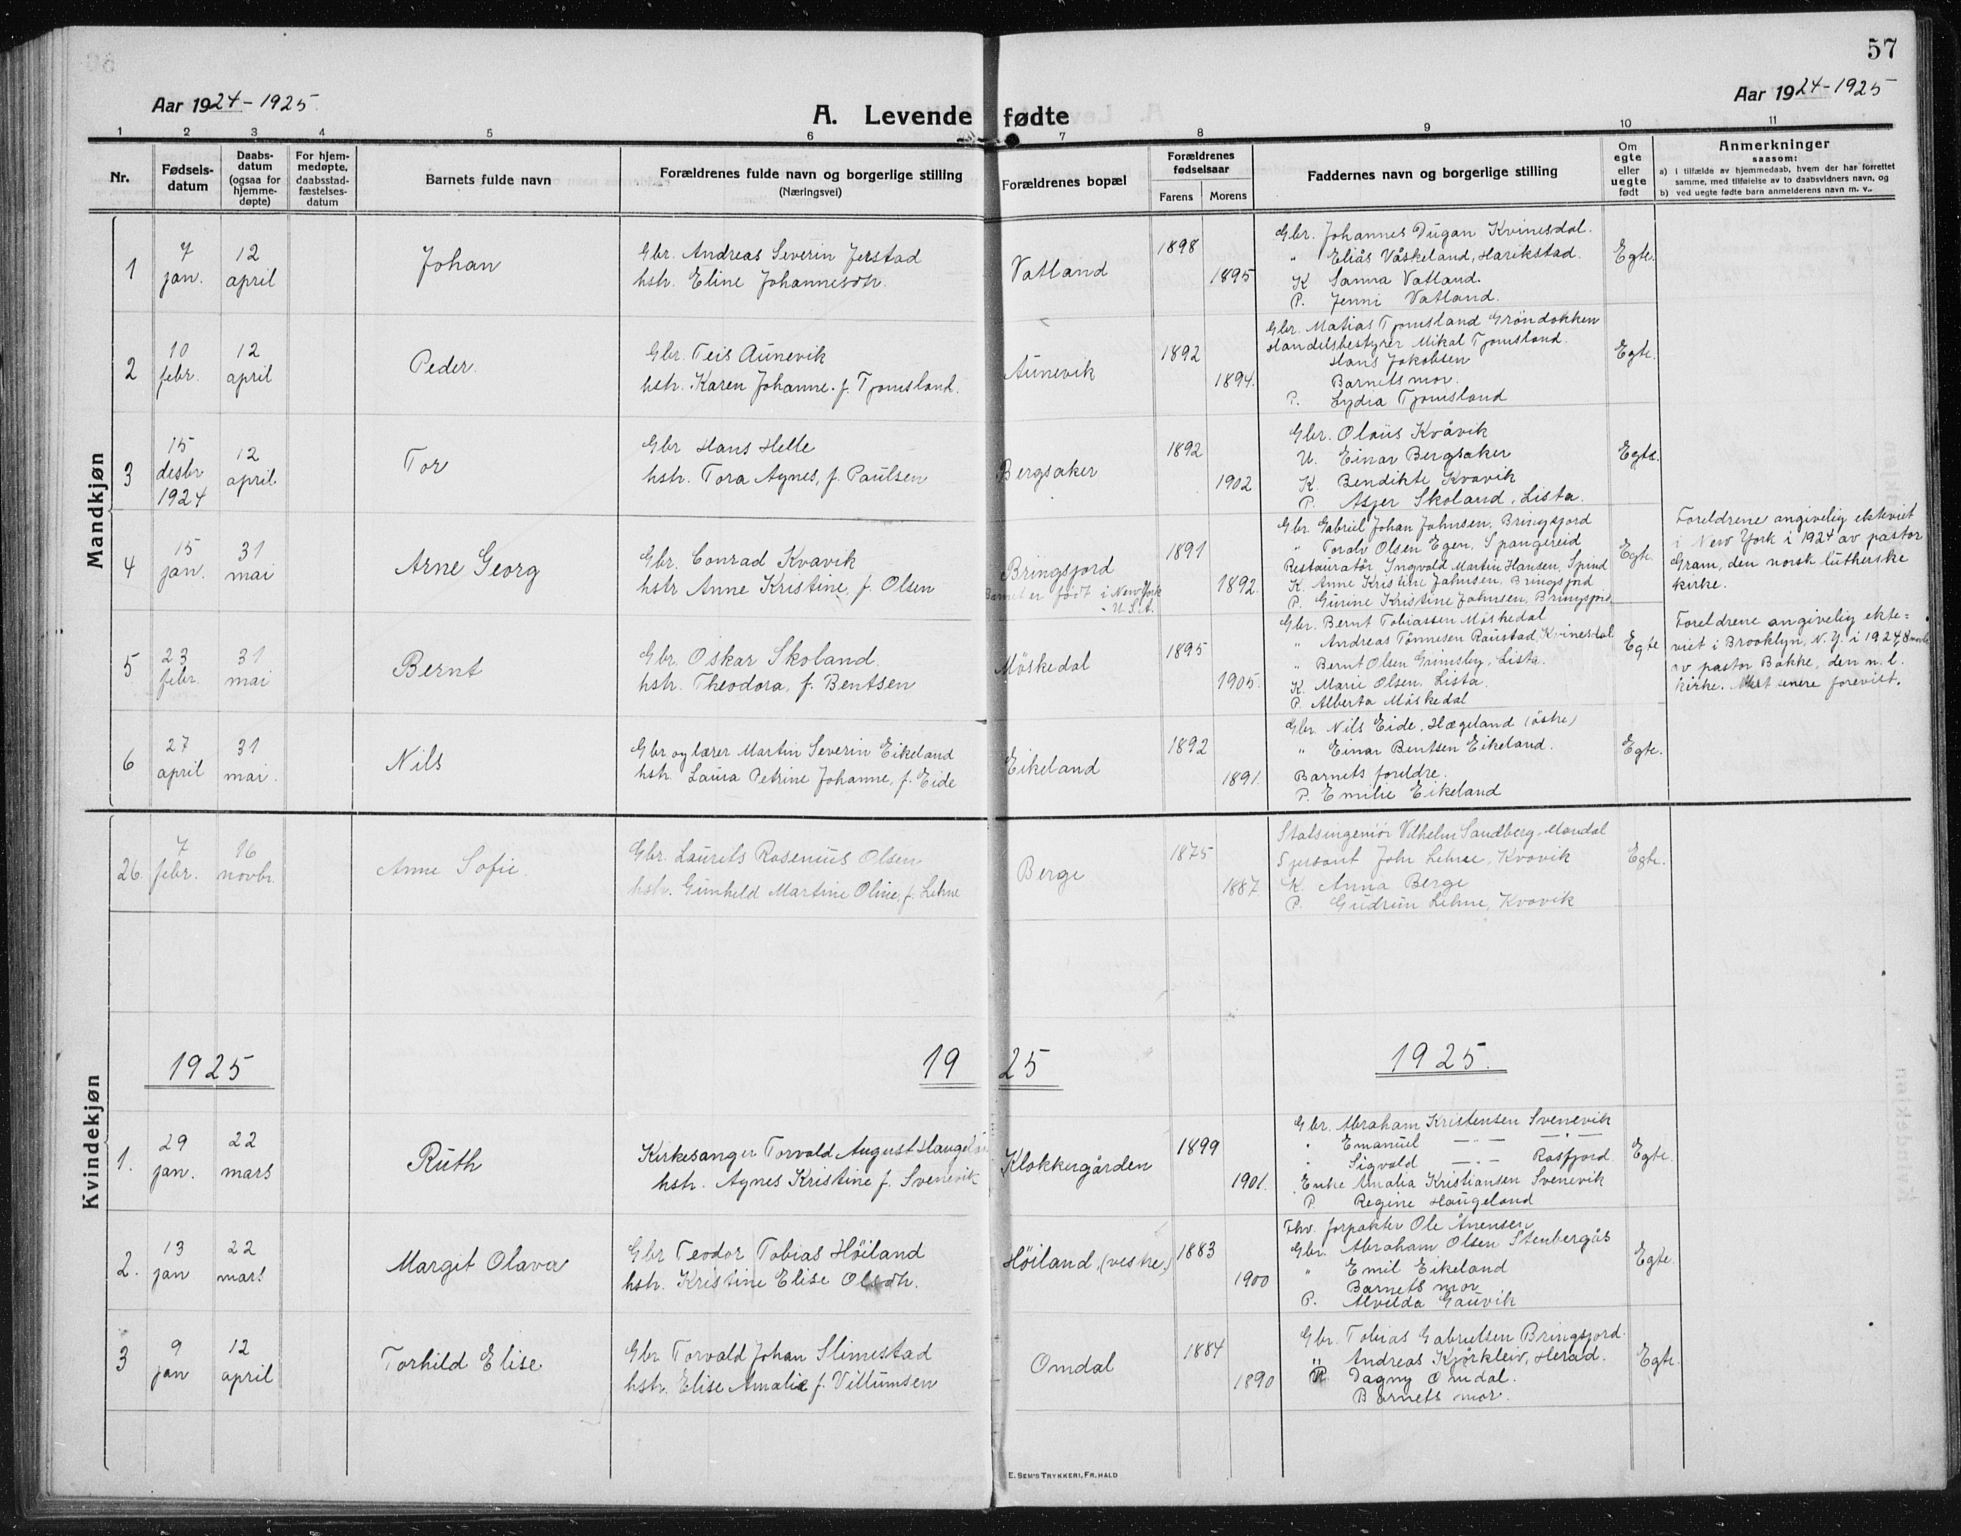 57
Aar 1924-1925
Aar 1924-1925
A. Levende fødte
1 2 3 4 5 6 7 8 9 10 11
Nr.
Fødsels-
datum
Daabs-
datum
(ogsaa for
hjemme-
døpte)
For hjem-
medøpte,
daabsstad-
fæstelses-
datum
Barnets fulde navn
Forældrenes fulde navn og borgerlige stilling
(Næringsvei)
Forældrenes bopæl
Forældrenes
fødselsaar
Farens Morens
Faddernes navn og borgerlige stilling
Om
egte
eller
uegte
født
Anmerkninger
saasom:
a) i tilfælde av hjemmedaab, hvem der har forrettet
samme, med tilføielse av to daabsvidners navn, og
b) ved uegte fødte barn anmelderens navn m. v..
Mandkjøn
1
7
jan.
12
april
Johan
Gbr. Andreas Severin Jerstad
hstr. Eline Johannesdtr.
Vatland
1898
1895
Gbr. Johannes Dugan Kvinesdal.
" Elias Våskeland, Harikstad.
K Sanna Vatland.
P. Jenni Vatland.
Egte.
2
10
febr.
12
april
Peder.
Gbr. Teis Aunevik
hstr. Karen Johanne. f. Tjomsland.
Aunevik
1892
1894.
Gbr. Matias Tjomsland Gröndokken
Handelsbestyrer Mikal Tjomsland.
Hans Jakobsen
Barnets mor.
P. Lydia Tjomsland
Egte.
3
15
desbr
1924
12
april
Tor
Gbr Hans Helle
hstr. Tora Agnes, f. Paulsen
Bergsaker
1892
1902
Gbr. Olaus Kvåvik
U. Einar Bergsaker
K. Bendikte Kvavik
P. Asjer Skoland, Lista.
Egte.
4
15
jan.
31
mai
Arne Georg
Gbr. Conrad Kvavik
hstr Anne Kristine, f. Olsen
Bringsjord
Barnet er født i New York
U.S.A.
1891
1892.
Gbr Gabriel Johan Johnsen, Bringsjord
" Torolv Olsen Egen, Spangereid
Restauratør Ingvold Martin Hansen, Spind
K. Anne Kristine Johnsen, Bringsjord
P. Gurine Kristine Johnsen, Bringsjord
Egte.
Foreldrene angivelig ekteviet
i New York i 1924 av pastor
Gram, den norsk lutherske
kirke.
5
23
febr.
31
mai
Bernt
Gbr. Oskar Skoland.
hstr. Theodora, f. Bentsen
Möskedal
1895
1905.
Gbr. Bernt Tobiassen Möskedal
" Andreas Tönnesen Raustad, Kvinesdal
" Bernt Olsen Grimsby, Lista.
K. Marie Olsen, Lista.
P. Alberta Möskedal
Egte
Foreldrene angivelig ekte-
viet i Brooklyn, N.Y. i 1924
av pastor Bakke, den n. l.
kirke.
6
27
april
31
mai.
Nils
Gbr og lærer Martin Severin Eikeland
hstr. Laura Petrine Johanne, f. Eide
Eikeland
1892
1891.
Gbr. Nils Eide, Hægeland (östre)
" Einar Bentsen Eikeland.
Barnets foreldre.
P. Emilie Eikeland
Egte.
26.
7
febr.
16
novbr.
Anne Sofie.
Gbr. Laurits Rosenius Olsen
hstr. Gunhild Martine Oline, f. Lehne
Berge
1875
1887
Statsingeniör Vilhelm Sandberg, Mandal
Sersant Johr Lehne, Kvavik
K. Anna Berge
P. Gudrun Lehne, Kvavik
Egte.
1925
19 25
1925.
Kvindekjøn
1.
29
jan.
22
mars
Ruth
Kirkesanger Torvald August Haugeland
hstr. Agnes Kristine f. Svenevik
Klokkergården
1899
1901.
Gbr. Abraham Kristensen Svenevik
" Emanuel —"— —"—
" Sigvald —"— Rosfjord.
Enke Amalia Kristiansen Svenevik
P. Regine Haugeland
Egte.
2.
13
jan
22
mars
Margit Olava
Gbr Teodor Tobias Höiland
hstr. Kristine Elise Olsdtr.
Höiland, (vestre.)
1883
1900
Fhv. forpakter Ole Ånensen
Gbr. Abraham Olsen Stenbergås
" Emil Eikeland
Barnets mor
P. Alvilda Gauvik
Egte.
3
9
jan
12
april
Torhild Elise
Gbr Torvald Johan Slimestad
hstr. Elise Amalie f. Villumsen
Omdal
1884
1890
Gbr. Tobias Gabrielsen Bringsjord.
" Andreas Kjørkleiv, Herad.
P. Dagny Omdal.
Barnets mor.
Egte.
E. SEM'S TRYKKERI, FR.HALD